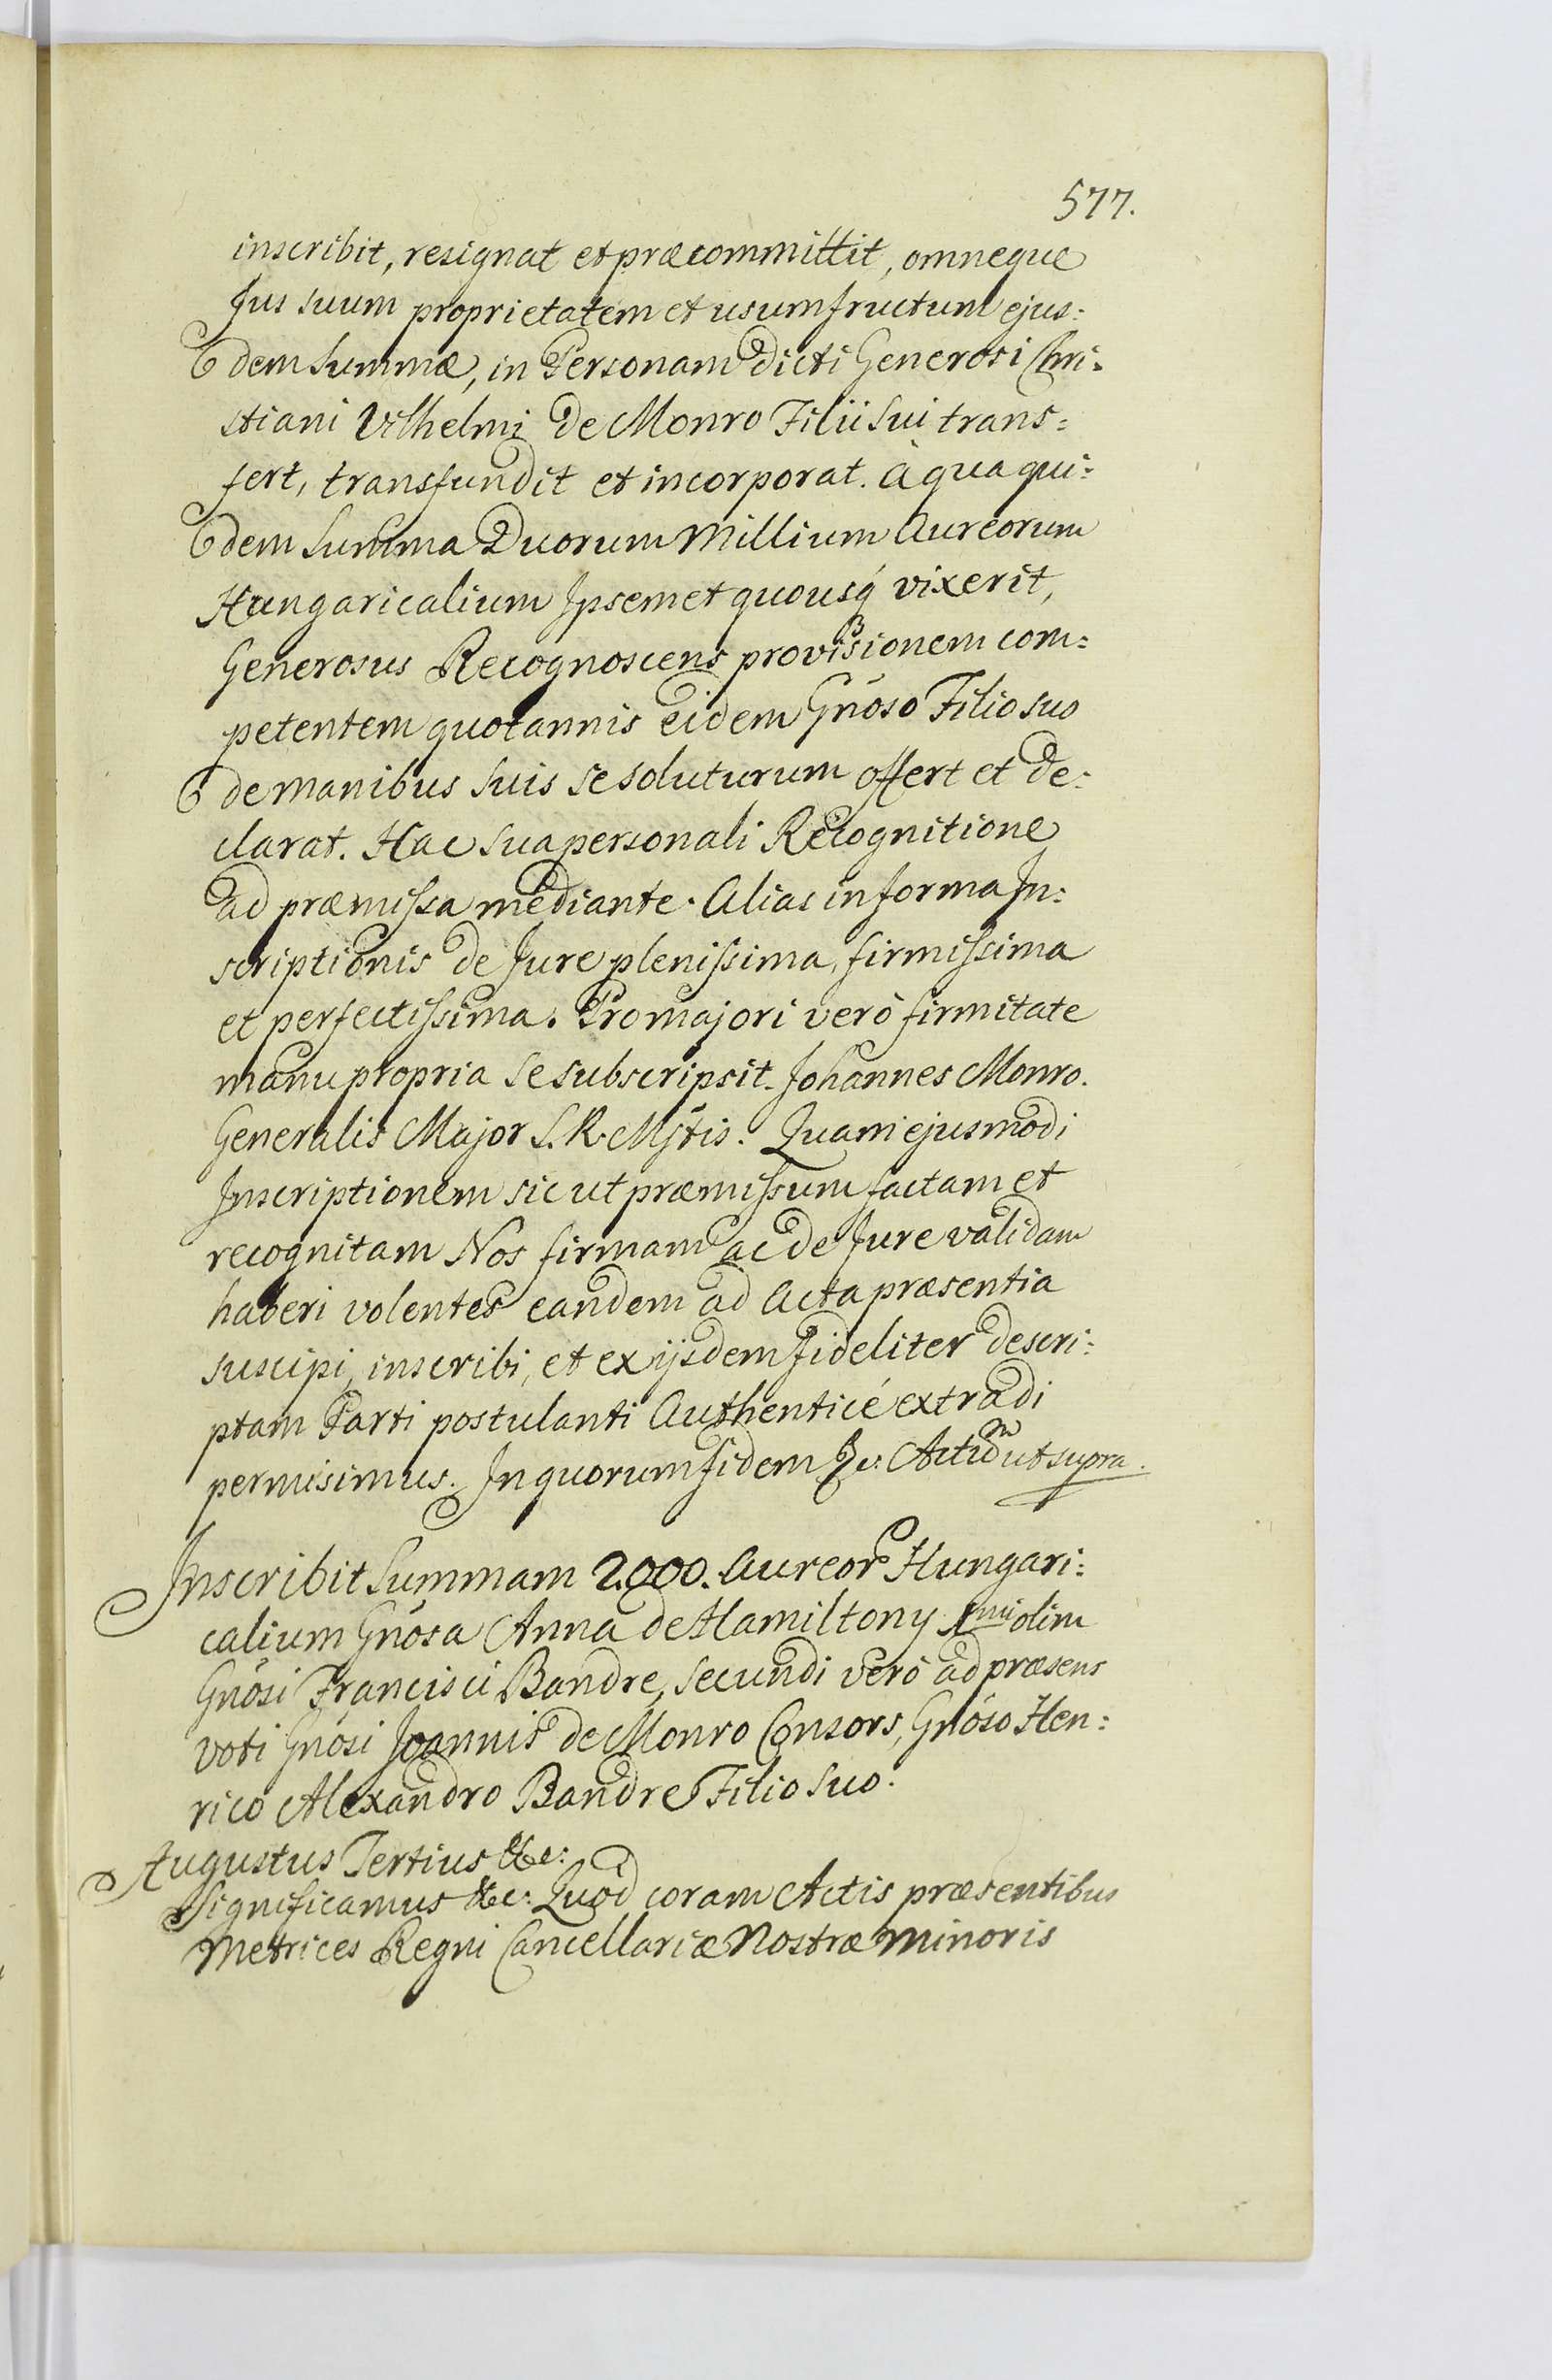 577.
inscribit, resignat et præcommittit, omneque
Jus suum proprietatem et usumfructum ejus:
dem Summæ, in Personam dicti Generosi Chri:
stiani Vilhelmi de Monro Filii Sui trans:
fert, transfundit et incorporat. à qua qui:
dem Summa Duorum Millium Aureorum
Hungaricalium Ipsemet quousq́ vixerit,
Generosus Recognoscens provisionem com:
petentem quotannis eidem Gnõso Filio suo
de manibus suis se soluturum offert et de:
clarat. Hac sua personali Recognitione
ad præmissa mediante. Alias in forma In:
scriptionis de Jure plenissima, firmissima
et perfectissima. Pro majori verò firmitate
manu propria se subscripsit. Johannes Monro.
Generalis Major S. R. Mjtis. Quam ejusmodi
Inscriptionem sic ut præmissum factam et
recognitam Nos firmam ac de Jure validam
haberi volentes eandem ad Acta præsentia
suscipi, inscribi, et ex ijsdem fideliter descri:
ptam Parti postulanti Authenticé extradi
permisimus. In quorum fidem &c: Actum ut supra.
Inscribit Summam 2000. Aureor Hungari:
calium Gnõsa Anna de Hamiltony 1mi olim
Gnõsi Francisci Bandre, secundi verò ad præsens
voti Gnõsi Joannis de Monro Consors, Gnõso Hen:
rico Alexandro Bandre Filio suo.
Augustus Tertius &c:
Significamus &c: Quod coram Actis præsentibus
Metrices Regni Cancellariæ Nostræ Minoris